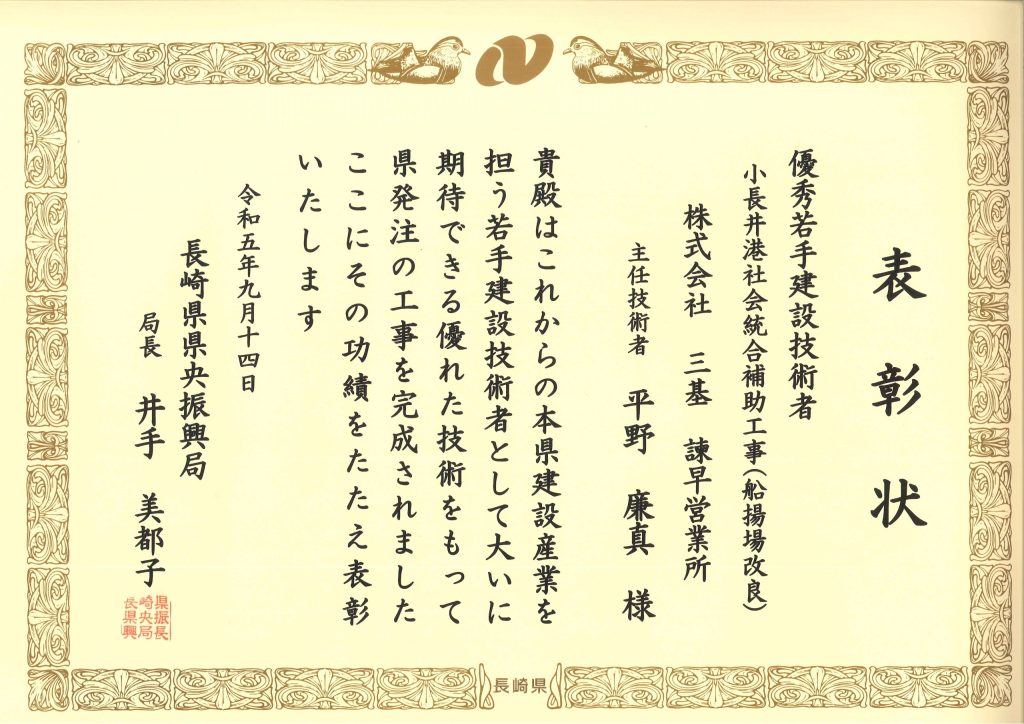 表彰状
優秀若手建設技術者
小長井港社会統合補助工事(船揚場改良)
株式会社 三基 諫早営業所
主任技術者 平野 廉真 様
貴殿はこれからの本県建設産業を
担う若手建設技術者として大いに
期待できる優れた技術をもって
県発注の工事を完成されました
ここにその功績をたたえ表彰
いたします
令和五年九月十四日
長崎県県央振興局
局長 井手 美都子
県振長
崎央局
長県興
長崎県